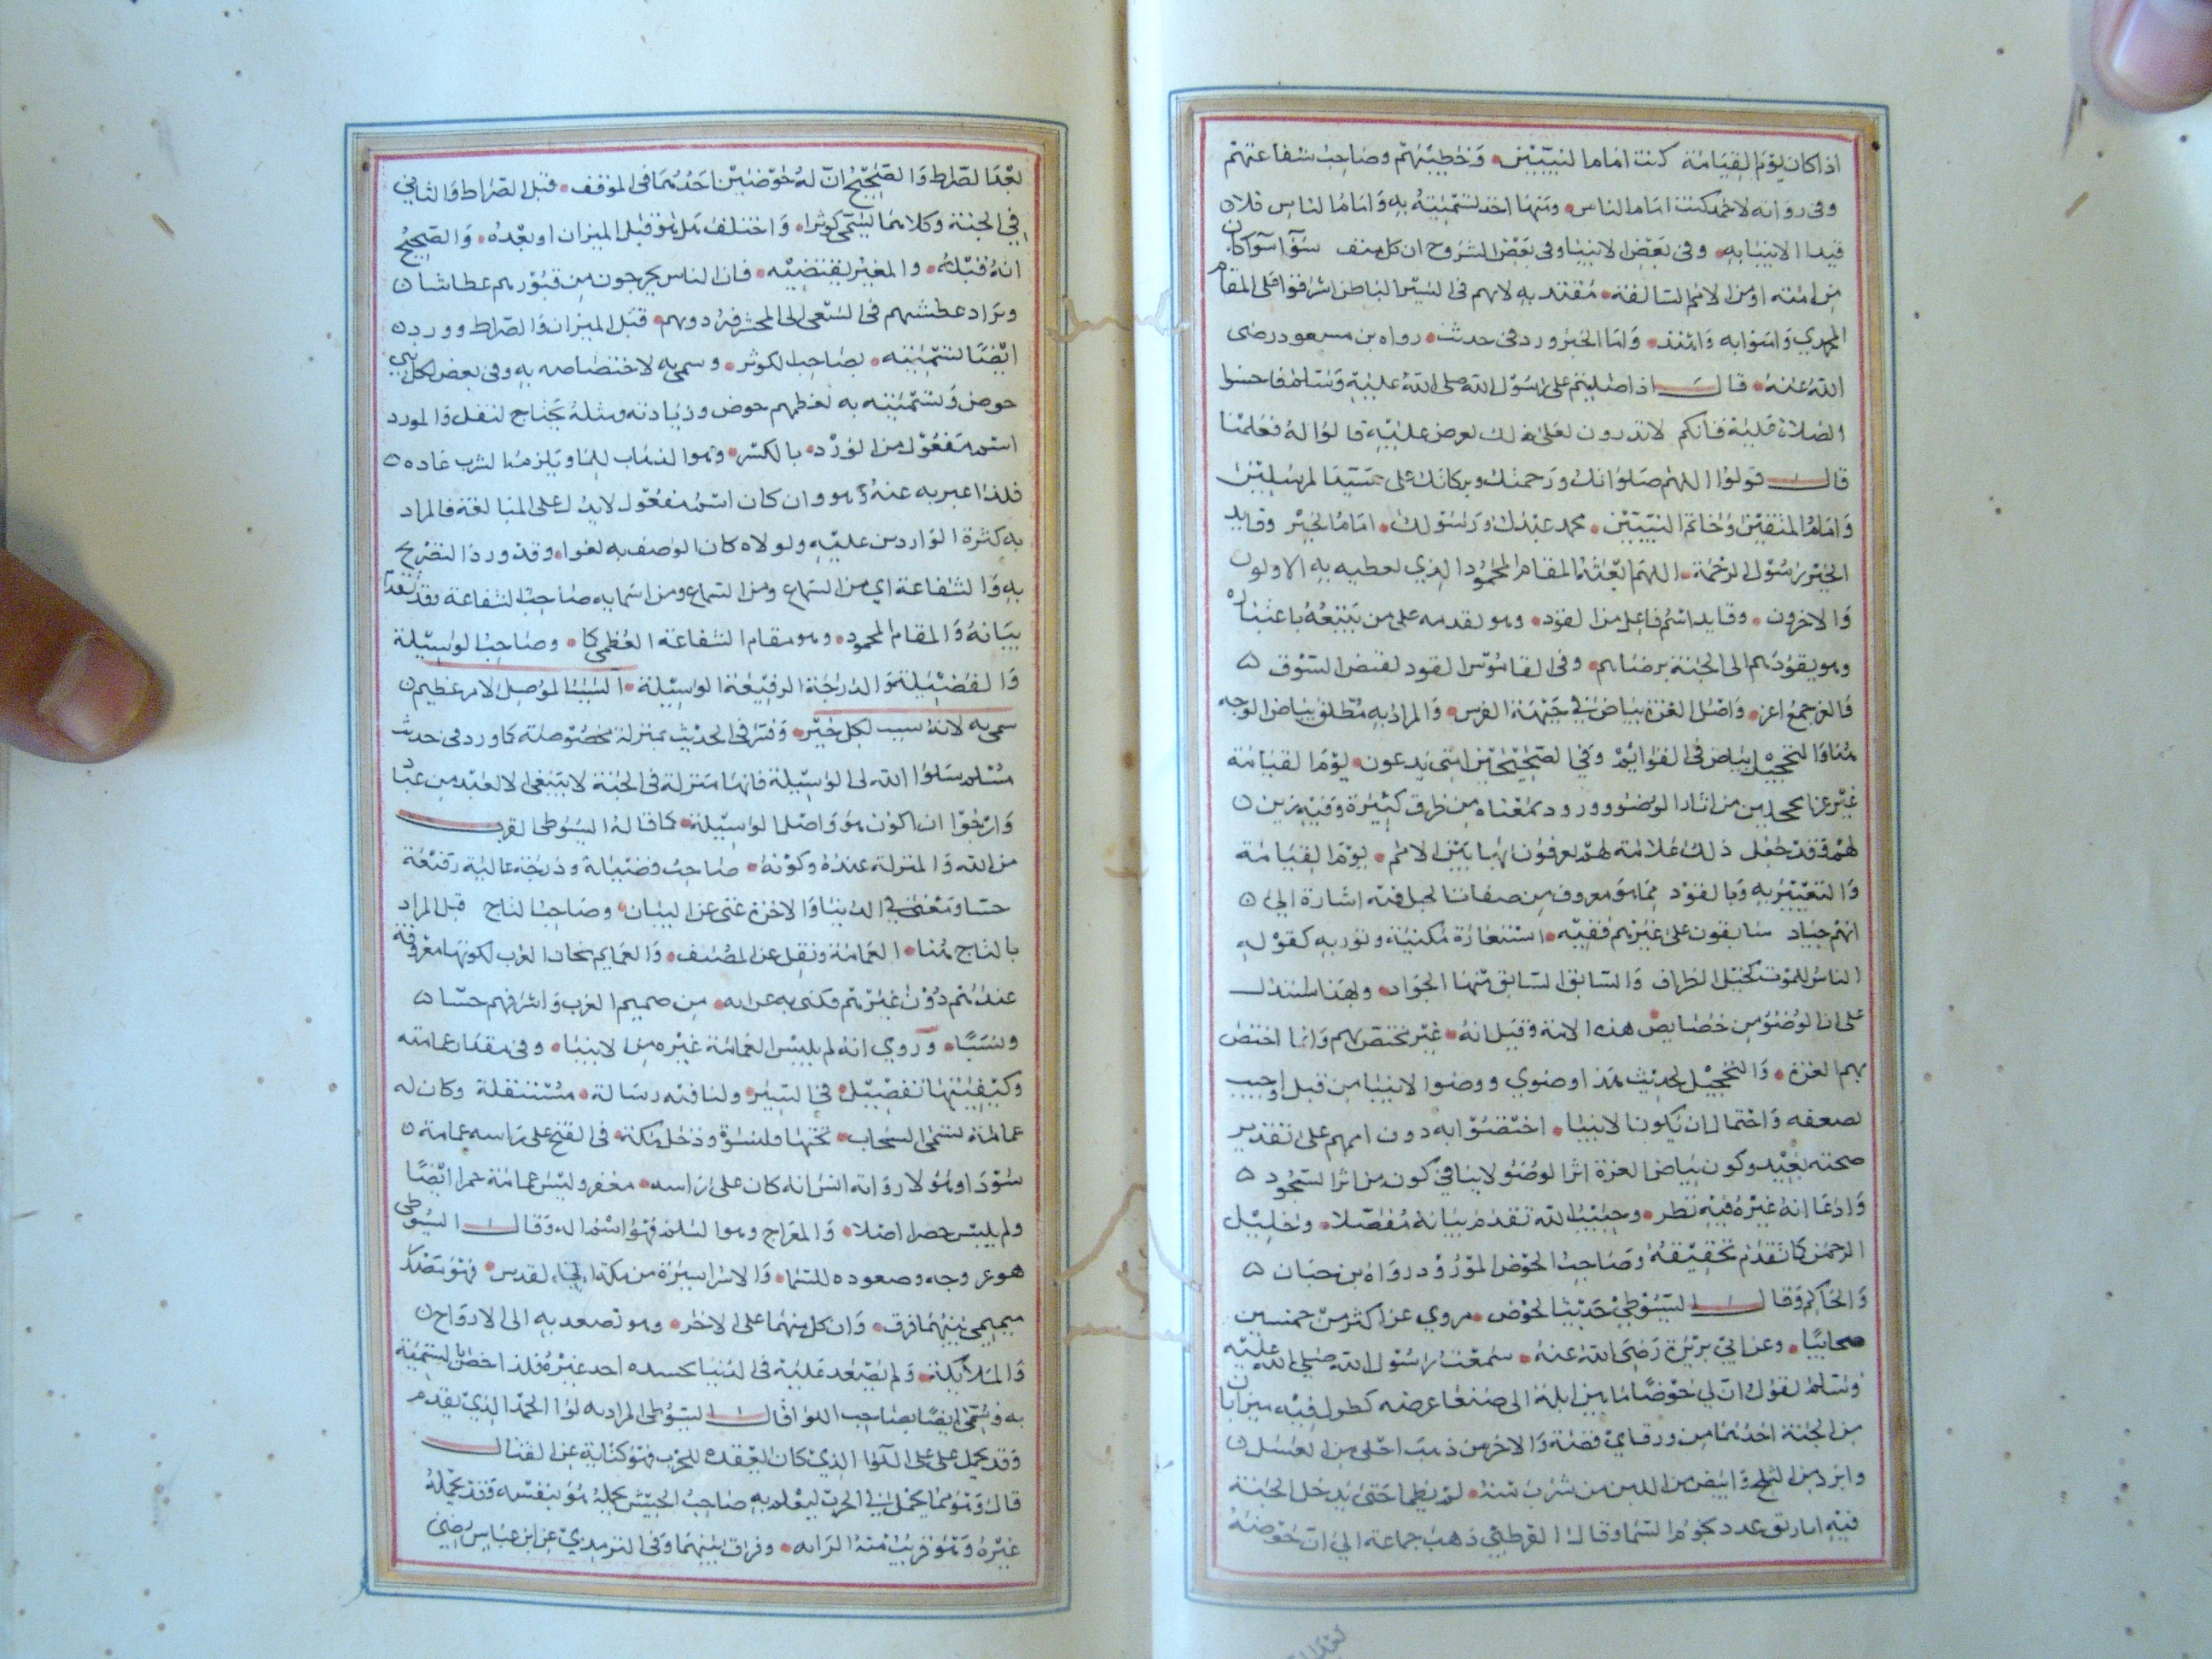 اذا كان يوم القيامة كنت امام النبيين وخطيبهم وصاحب شفاعتهم
وفي رواية لاحمد كنت امام الناس ومنها اخذ تسميته به وامام الناس
قيد الانبيا به وفي بعض الانبيا وفي بعض الشروح ان كل
من امته او من الامم السالفة مقتد به لانهم في
المهدي وامنوا به وامّا الخبر ورد في حديث رواه بن مسعود رضى
الله عنه قال اذا صليتم على رسول الله صلى الله عليه وسلم فاحسنوا
الصلاة عليه فانكم لا تدرون لعل ذلك يعرض عليه قالوا له فعلمنا
قال قولوا اللهم صلواتك ورحمتك وبركاتك على سيد المرسلين
وامام المتقين وخاتم النبيين محمد عبدك ورسولك امام الخير وقايد
الخير رسول الرحمة اللهم ابعثه المقام المحمود الذي يغبطه به الاولون
والاخرون وقايد اسم فاعل من القود وهو تقدمه على من يتبعه
وهو يقودهم الى الجنة برضاهم وفي القاموس القود نقيض السوق
فالغر جمع اغر واصل الغرة بياض في جبهة الفرس والمراد به مطلق بياض الوجه
هنا والتحجيل بياض في القوائم وفي الصحيحين امتى يدعون يوم القيامة
غير عنا محجلين من اثار الوضو وورود بمعناه من طرق كثيرة
لهم فقد جعل ذلك علامة لهم يعرفون بها بين الامم يوم القيامة
والتعبير به وبالقود مما هو معروف من صفات الخيل فيه اشارة الى
انهم جياد سابقون على غيرهم ففيه استعارة مكنية وتورية كقوله
الناس للموت كخيل الطراف والسابق السابق منها الجواد ولهذا استدل
على ان الوضو من خصايص هذه الامة وقيل انه غير مختص بهم وانما اختص
بهم الغرة والتحجيل لحديث هذا وضوي ووضوا الانبيا من قبل اوجيب
لضعفه واحتمال ان يكون الانبيا اختصوا به دون اممهم على تقدير
صحته بعيد وكون بياض الغرة اثر الوضو لاينافي كون من اثر السجود
وادعا انه غيره فيه نظر وحبيب الله تقدم بيانه مفصلا وخليل
الرحمن كما تقدم تحقيقه وصاحب الحوض المورود رواه بن حبان
والحاكم وقال السيوطي حديث الحوض مروي عن اكثر من خمسين
صحابيا وعن ابي برزة رضى الله عنه سمعت رسول الله صلى الله عليه
وسلم يقول ان لي حوضا ما بين ايلة الى صنعا عرضه كطوله فيه ميزابان
من الجنة احدهما من ورق اي فضة والاخر من ذهب احلى من العسل
وابرد من الثلج وابيض من اللبن من شرب منه لم يظما حتى يدخل الجنة
فيه اباريق عدد نجوم السما وقال القرطبي ذهب جماعة الى ان حوضه
بعد الصراط والصحيح ان له حوضين احدهما في الموقف قبل الصراط والثاني
في الجنة وكلاهما يسمى كوثرا واختلف هل هو قبل الميزان او بعده والصحيح
انه قبله والمعني يقتضيه فان الناس يخرجون من قبورهم عطاشا
ويزاد عطشهم في السعى الى المحشر فيردونهم قبل الميزان والصراط وورد
ايضا تسميته بصاحب الكوثر وسمى به لاختصاصه به وفي بعض لكل نبي
حوض وتسميته به لعظمهم حوض وزيادته ومثله يحتاج لنقل والمورد
اسم مفعول من الورد بالكسر وهو الذهاب للما ويلزمه الشرب عادة
فلذا عبر به عنه وهو وان كان اسم مفعول لايدل على المبالغة فالمراد
به كثرة الواردين عليه ولولاه كان الوصف به لغوا وقد ورد التصريح
به والشفاعة اي من السماع ومن اسمايه صاحب الشفاعة وقد تقدم
بيانه والمقام المحمود وهو مقام الشفاعة العظمى وصاحب الوسيلة
والفضيلة والدرجة الرفيعة الوسيلة السبب الموصل لامر عظيم
سمى به لانه سبب لكل خير وفسر في الحديث بمنزلة مخصوصة كما ورد في حديث
مسلم سلوا الله لى الوسيلة فانها منزلة في الجنة لا تنبغى الا لعبد من عباد
وارجوا ان اكون هو واصل الوسيلة كما قاله السيوطى القرب
من الله والمنزلة عنده وكونه صاحب فضيلة ودرجة عالية رفيعة
حسا ومعنى في الدنيا والاخرة غنى عن البيان وصاحب التاج قيل المراد
بالتاج هنا العمامة ونقل عن المصنف والعمايم تيجان العرب لكونها معروفة
عندهم دون غيرهم فكنى به عن انه من صميم العرب واشرفهم حسا
ونسبا وروي انه لم يلبس العمامة غيره من الانبيا وفي مقدار عمامته
وكيفيتها تفصيل في السير ولنا فيه رسالة مستقلة وكان له
عمامة تسمى السحاب تحتها قلنسوة ودخل مكة في الفتح على راسه عمامة
سودا وهو لا رواية انس انه كان على راسه مغفر وليس عمامة حمرا ايضا
ولم يلبس حصرا اصلا والمعراج وهو السلم فهو اسم اله وقال السيوطى
هو عروجه وصعوده للسما والاسرا سيره من مكة الى القدس فهو مصدر
ميمي بينهما فرق وان كل منهما على الاخر وهو تصعد به الى الارواح
والملائكة ولم يصعد عليه في الدنيا بجسده احد غيره فلذا اخص بالتسمية
به وسمى ايضا بصاحب اللوا قال السيوطى المراد به لوا الحمد الذي يقدم
وقد يحمل على اللوا الذي كان يعقده للحرب فهو كناية عن القتال
قال وهو مما يحمل في الحرب ليعلم به صاحب الجيش يحمله هو بنفسه وقد يحمله
غيره وهو قريب منه الراية وفراق بينهما وفي الترمذي عن ابن عباس رضى